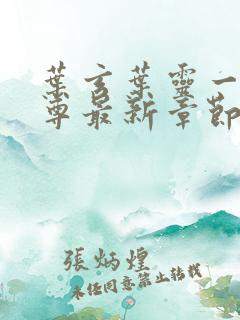 葉言葉靈一
尊最新章節
張炳煌
未經同意禁止轉載